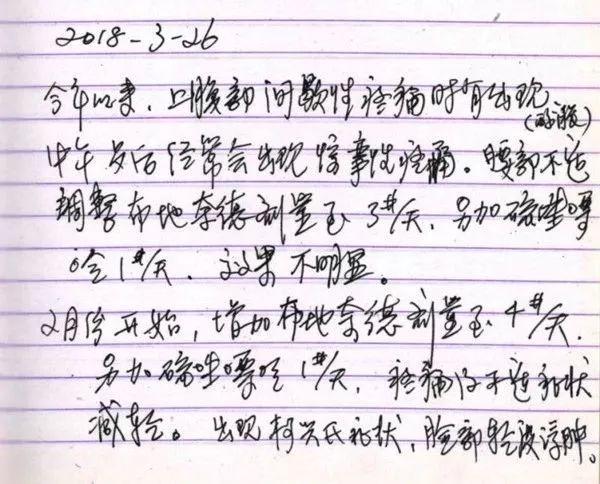 2018-3-26
今年以来，上腹部间歇性疼痛时有出现
中午 后经常会出现 性疼痛。腰部不适
调整布地奈德剂量至3#/天，另加硫唑嘌
呤1#/天，效果不明显。
2月份开始，增加布地奈德剂量至4#/天，
另加硫唑嘌呤1#/天，疼痛及不适症状
减轻。出现柯兴氏症状，脸部轻度浮肿。